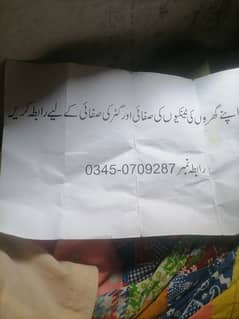 اپنے گھروں کی ٹینکیوں کی صفائی اور گٹر کی صفائی کے لیے رابطہ کریں
رابطہ نمبر 0345-0709287